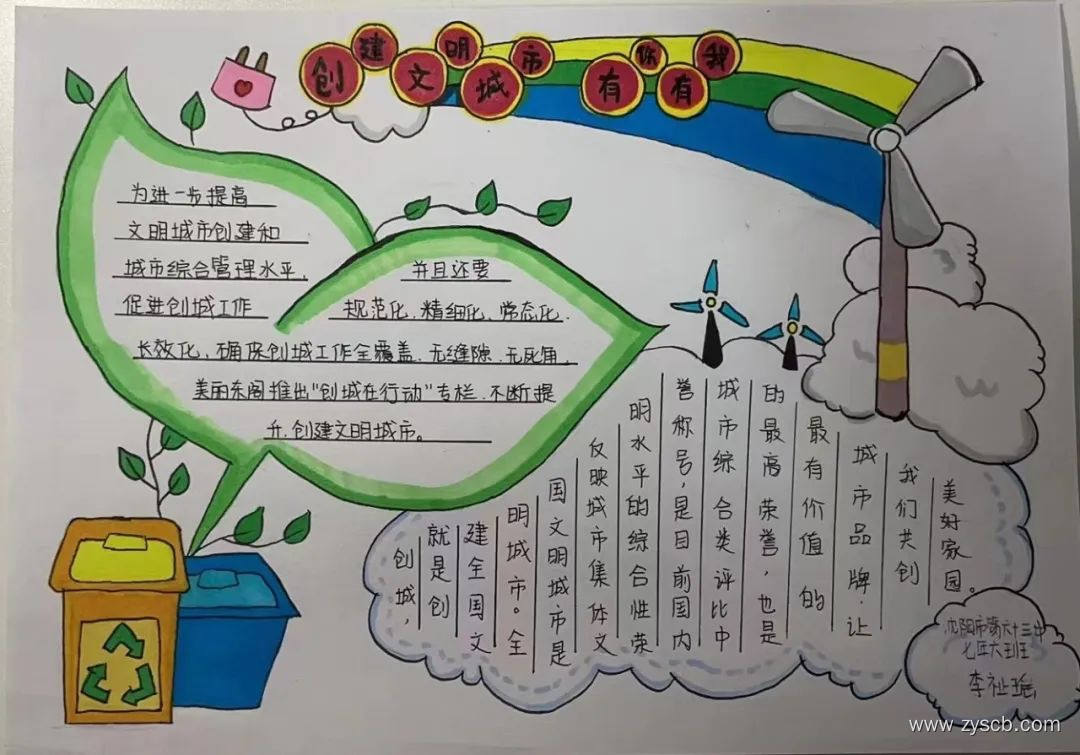 创建文明城市有你有我
为进一步提高
文明城市创建和
城市综合管理水平,
促进创城工作
并且还要
规范化、精细化、常态化、
长效化,确保创城工作全覆盖、无缝隙、无死角,
美丽东阁推出“创城在行动”专栏,不断提
升,创建文明城市。
创城,
就是创
建全国文
明城市。全
国文明城市是
反映城市集体文
明水平的综合性荣
誉称号,是目前国内
城市综合类评比中
的最高荣誉,也是
最有价值的
城市品牌,让
我们共创
美好家园。
沈阳市第六十三中
七年六班
李祉瑶
www.zyscb.com